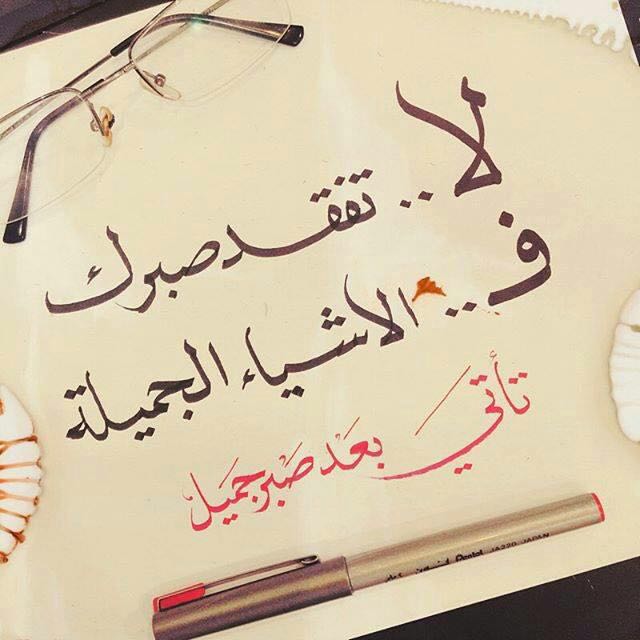 لا.. تفقد صبرك
ف.. الاشياء الجميلة
تأتي بعَد صَبر جَميَل
Pentel JA220 JAPAN